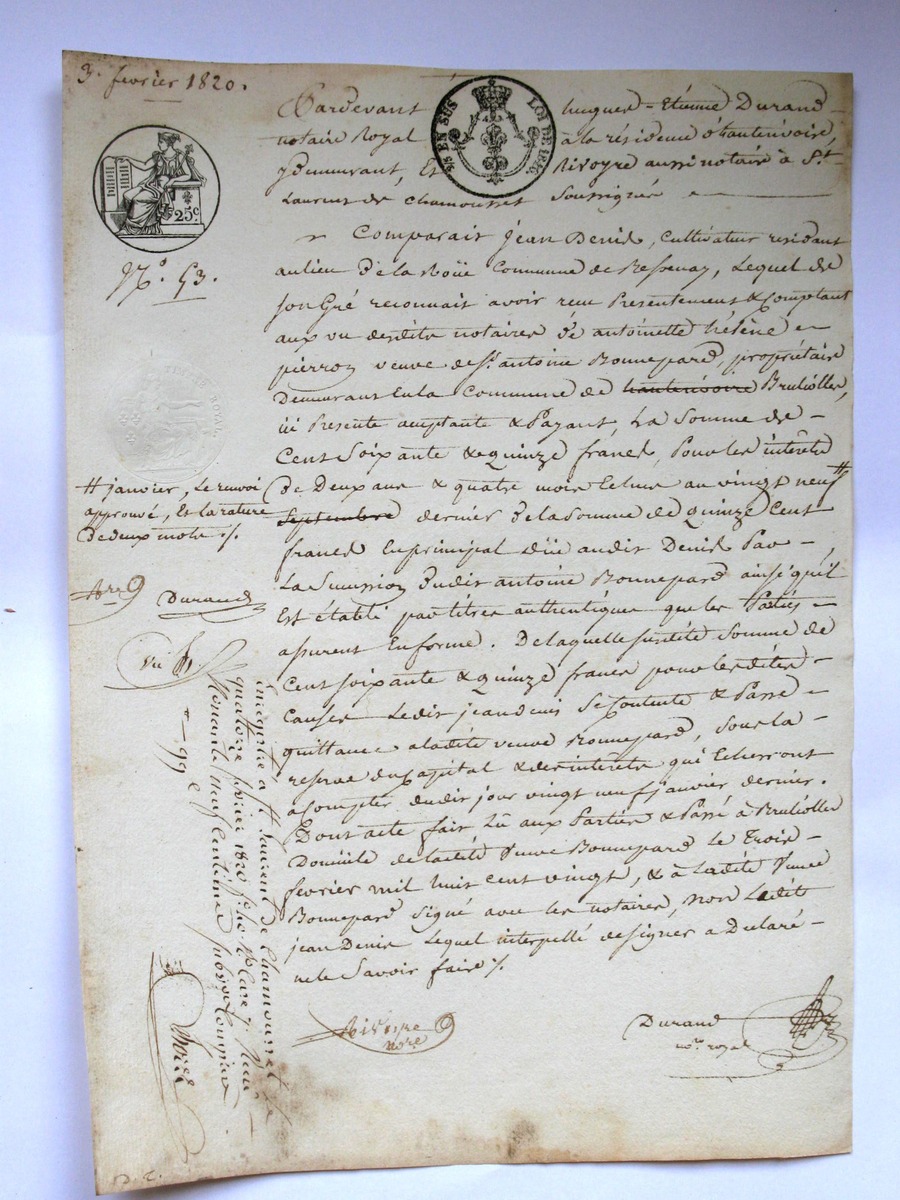 3. fevrier 1820.
Pardevant hugues-Etienne Durand
notaire Royal à la résidence d'hauterivoire,
y demeurant, Et Rivoyre aussi notaire à St.
Laurent de Chamousset Soussignés
2/5 EN SUS
LOI DE 1816.
25c.
No. 53.
TIMBRE ROYAL
Comparait Jean Denis, Cultivateur residant
au lieu de la Noüe Commune de Bessenay, Lequel de
son Gré reconnait avoir reçu Présentement & Comptant
aux vu desdits notaires de antoinette hélène
pierron veuve de sr. antoine Bonnepard, propriétaire
Demeurant En la Commune de hauterivoire Brulliolle,
ici Presente acceptante & Payant, La Somme de
Cent Soixante & quinze francs, Pour les intérêts
de Deux ans & quatre mois Echus au vingt neuf #
Septembre dernier de la Somme de quinze Cent
francs En principal düe audit Denis Par
La Succession dudit antoine Bonnepard ainsi qu'il
Est établi par titres authentiques que les Parties
assurent En forme. De laquelle susdite Somme de
Cent soixante & quinze francs pour les dites
Causes Ledit jean denis Se Contente & Passe
quittance a ladite veuve Bonnepard, sous la
reserve du Capital & des interets qui Echerront
a Compter dudit jour vingt neuf janvier dernier.
Dont acte fait Lu aux Parties & Passé à Brulliolle
Domicile de ladite Veuve Bonnepard Le Trois
fevrier mil huit cent vingt, & à Ladite Veuve
Bonnepard Signé avec les notaires, non Ledit
jean Denis Lequel interpellé de signer a Déclaré
ne le Savoir faire /.
# janvier, Le renvoi
approuvé, Et la rature
de deux mots /.
Durand
vu
Enregistré a St. Laurent de Chamousset Le
quatorze fevrier 1820
Rivoyre
nore.
Durand
nore. royal
D. C.